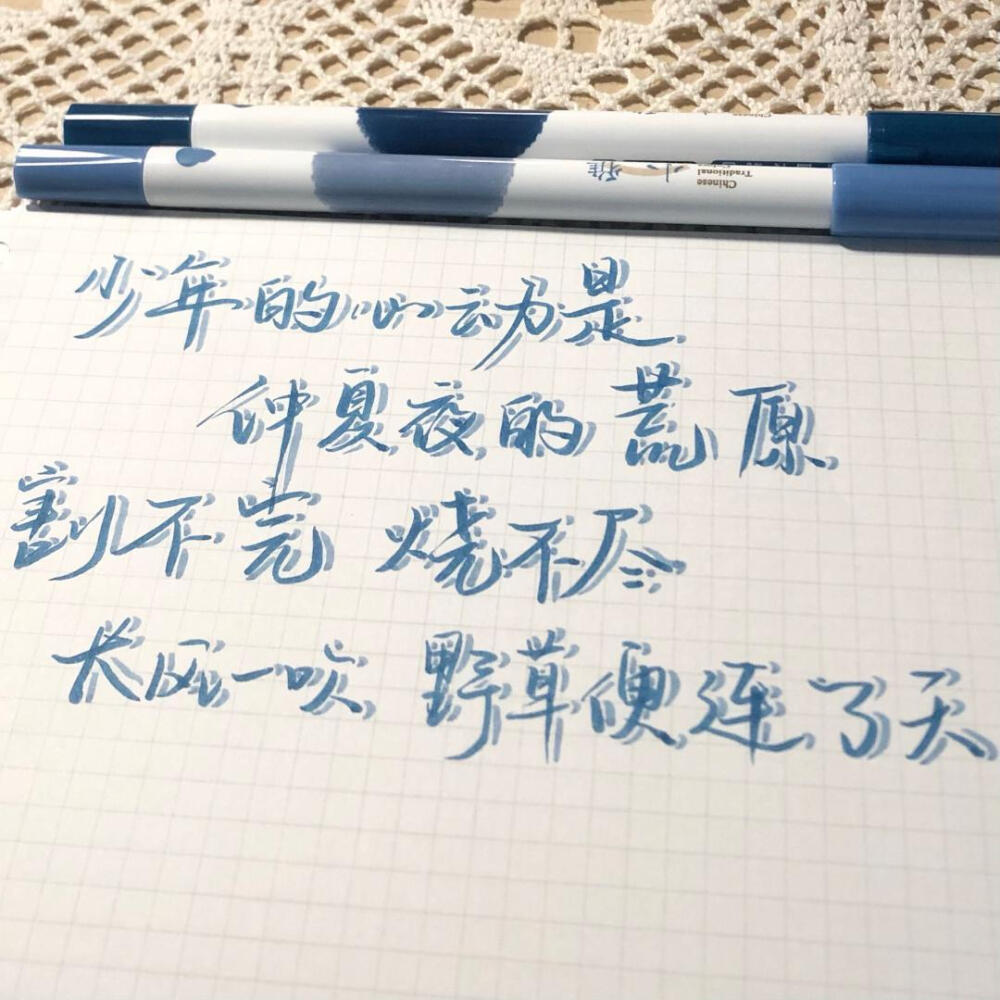 小雅
Chinese
Traditional
少年的心动是
仲夏夜的荒原
割不完 烧不尽
长风一吹 野草便连了天